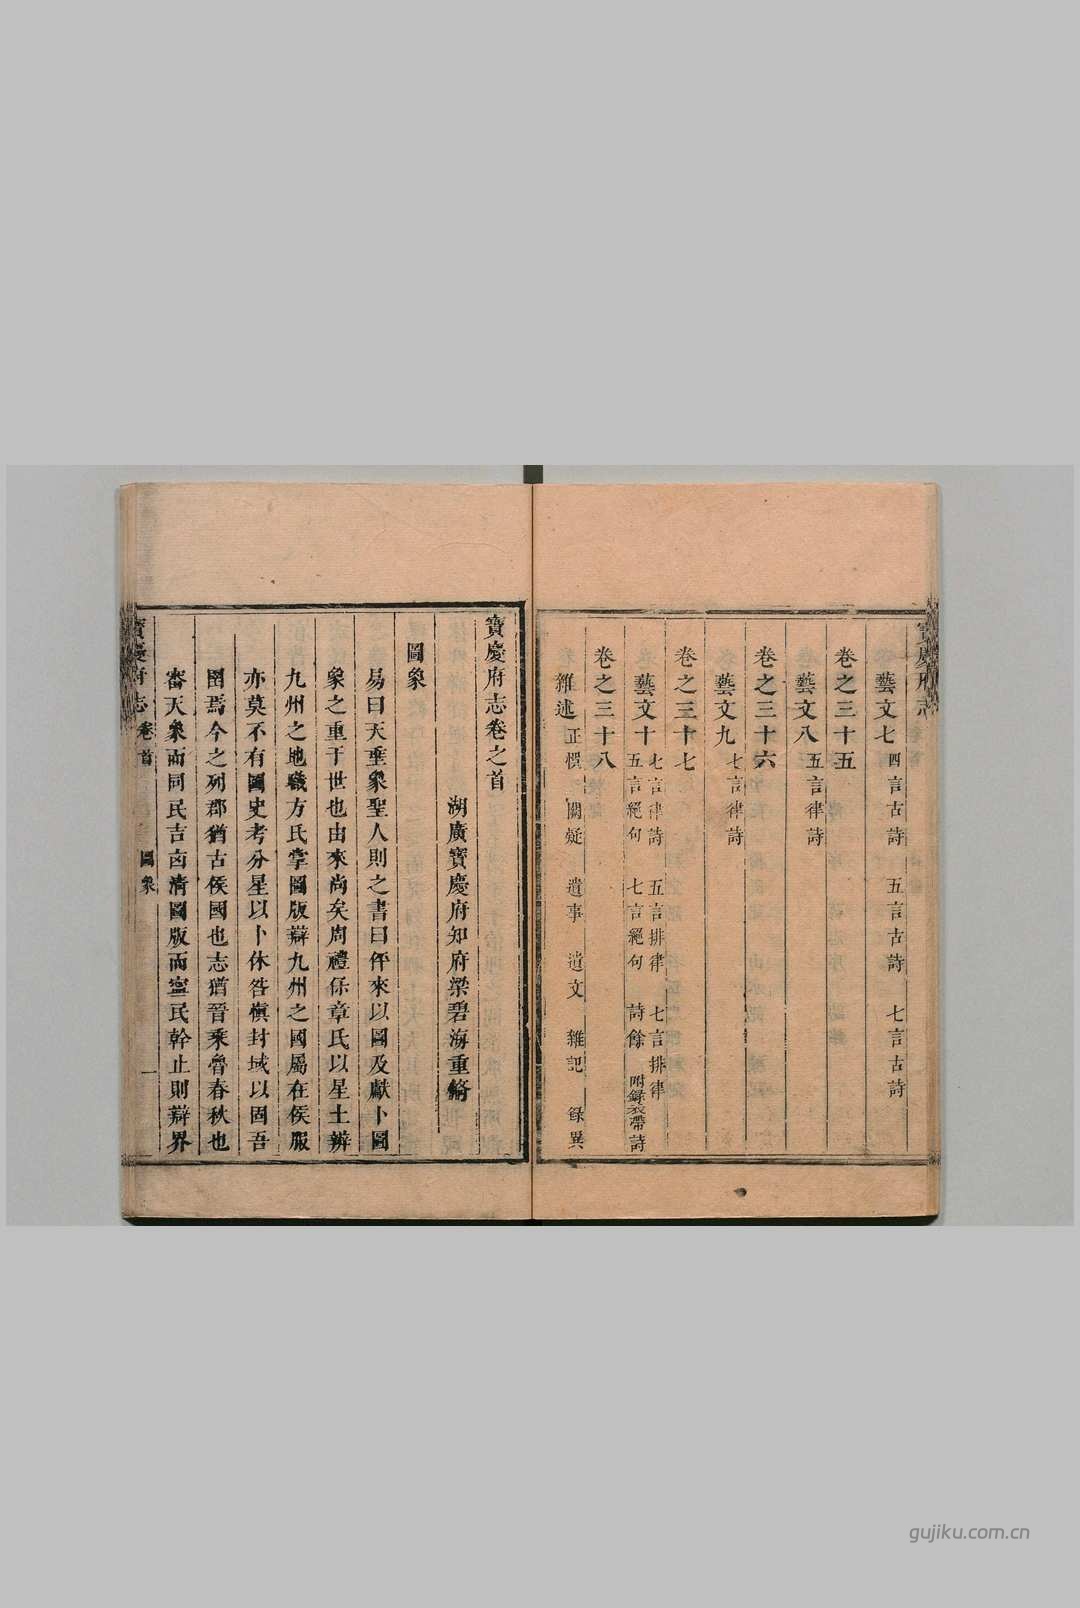 藝文七 四言古詩 五言古詩 七言古詩
卷之三十五
藝文八 五言律詩
卷之三十六
藝文九 七言律詩
卷之三十七
藝文十 七言律詩 五言排律 七言排律 五言絕句 七言絕句 詩餘 附錄衣帶詩
卷之三十八
雜述 正悞 闕疑 遺事 遺文 雜記 錄異
寶慶府志卷之首
湖廣寶慶府知府梁碧海重脩
圖象
易曰天垂象聖人則之書曰伻來以圖及獻卜圖
象之重于世也由來尚矣周禮保章氏以星土辨
九州之地職方氏掌圖版辯九州之國屬在侯服
亦莫不有圖史考分星以卜休咎愼封域以固吾
圉焉今之列郡猶古侯國也志猶晉乘魯春秋也
審天象而同民吉凶清圖版而寧民幹止則辯界
寶慶府志 卷首 圖象 一
gujiku.com.cn